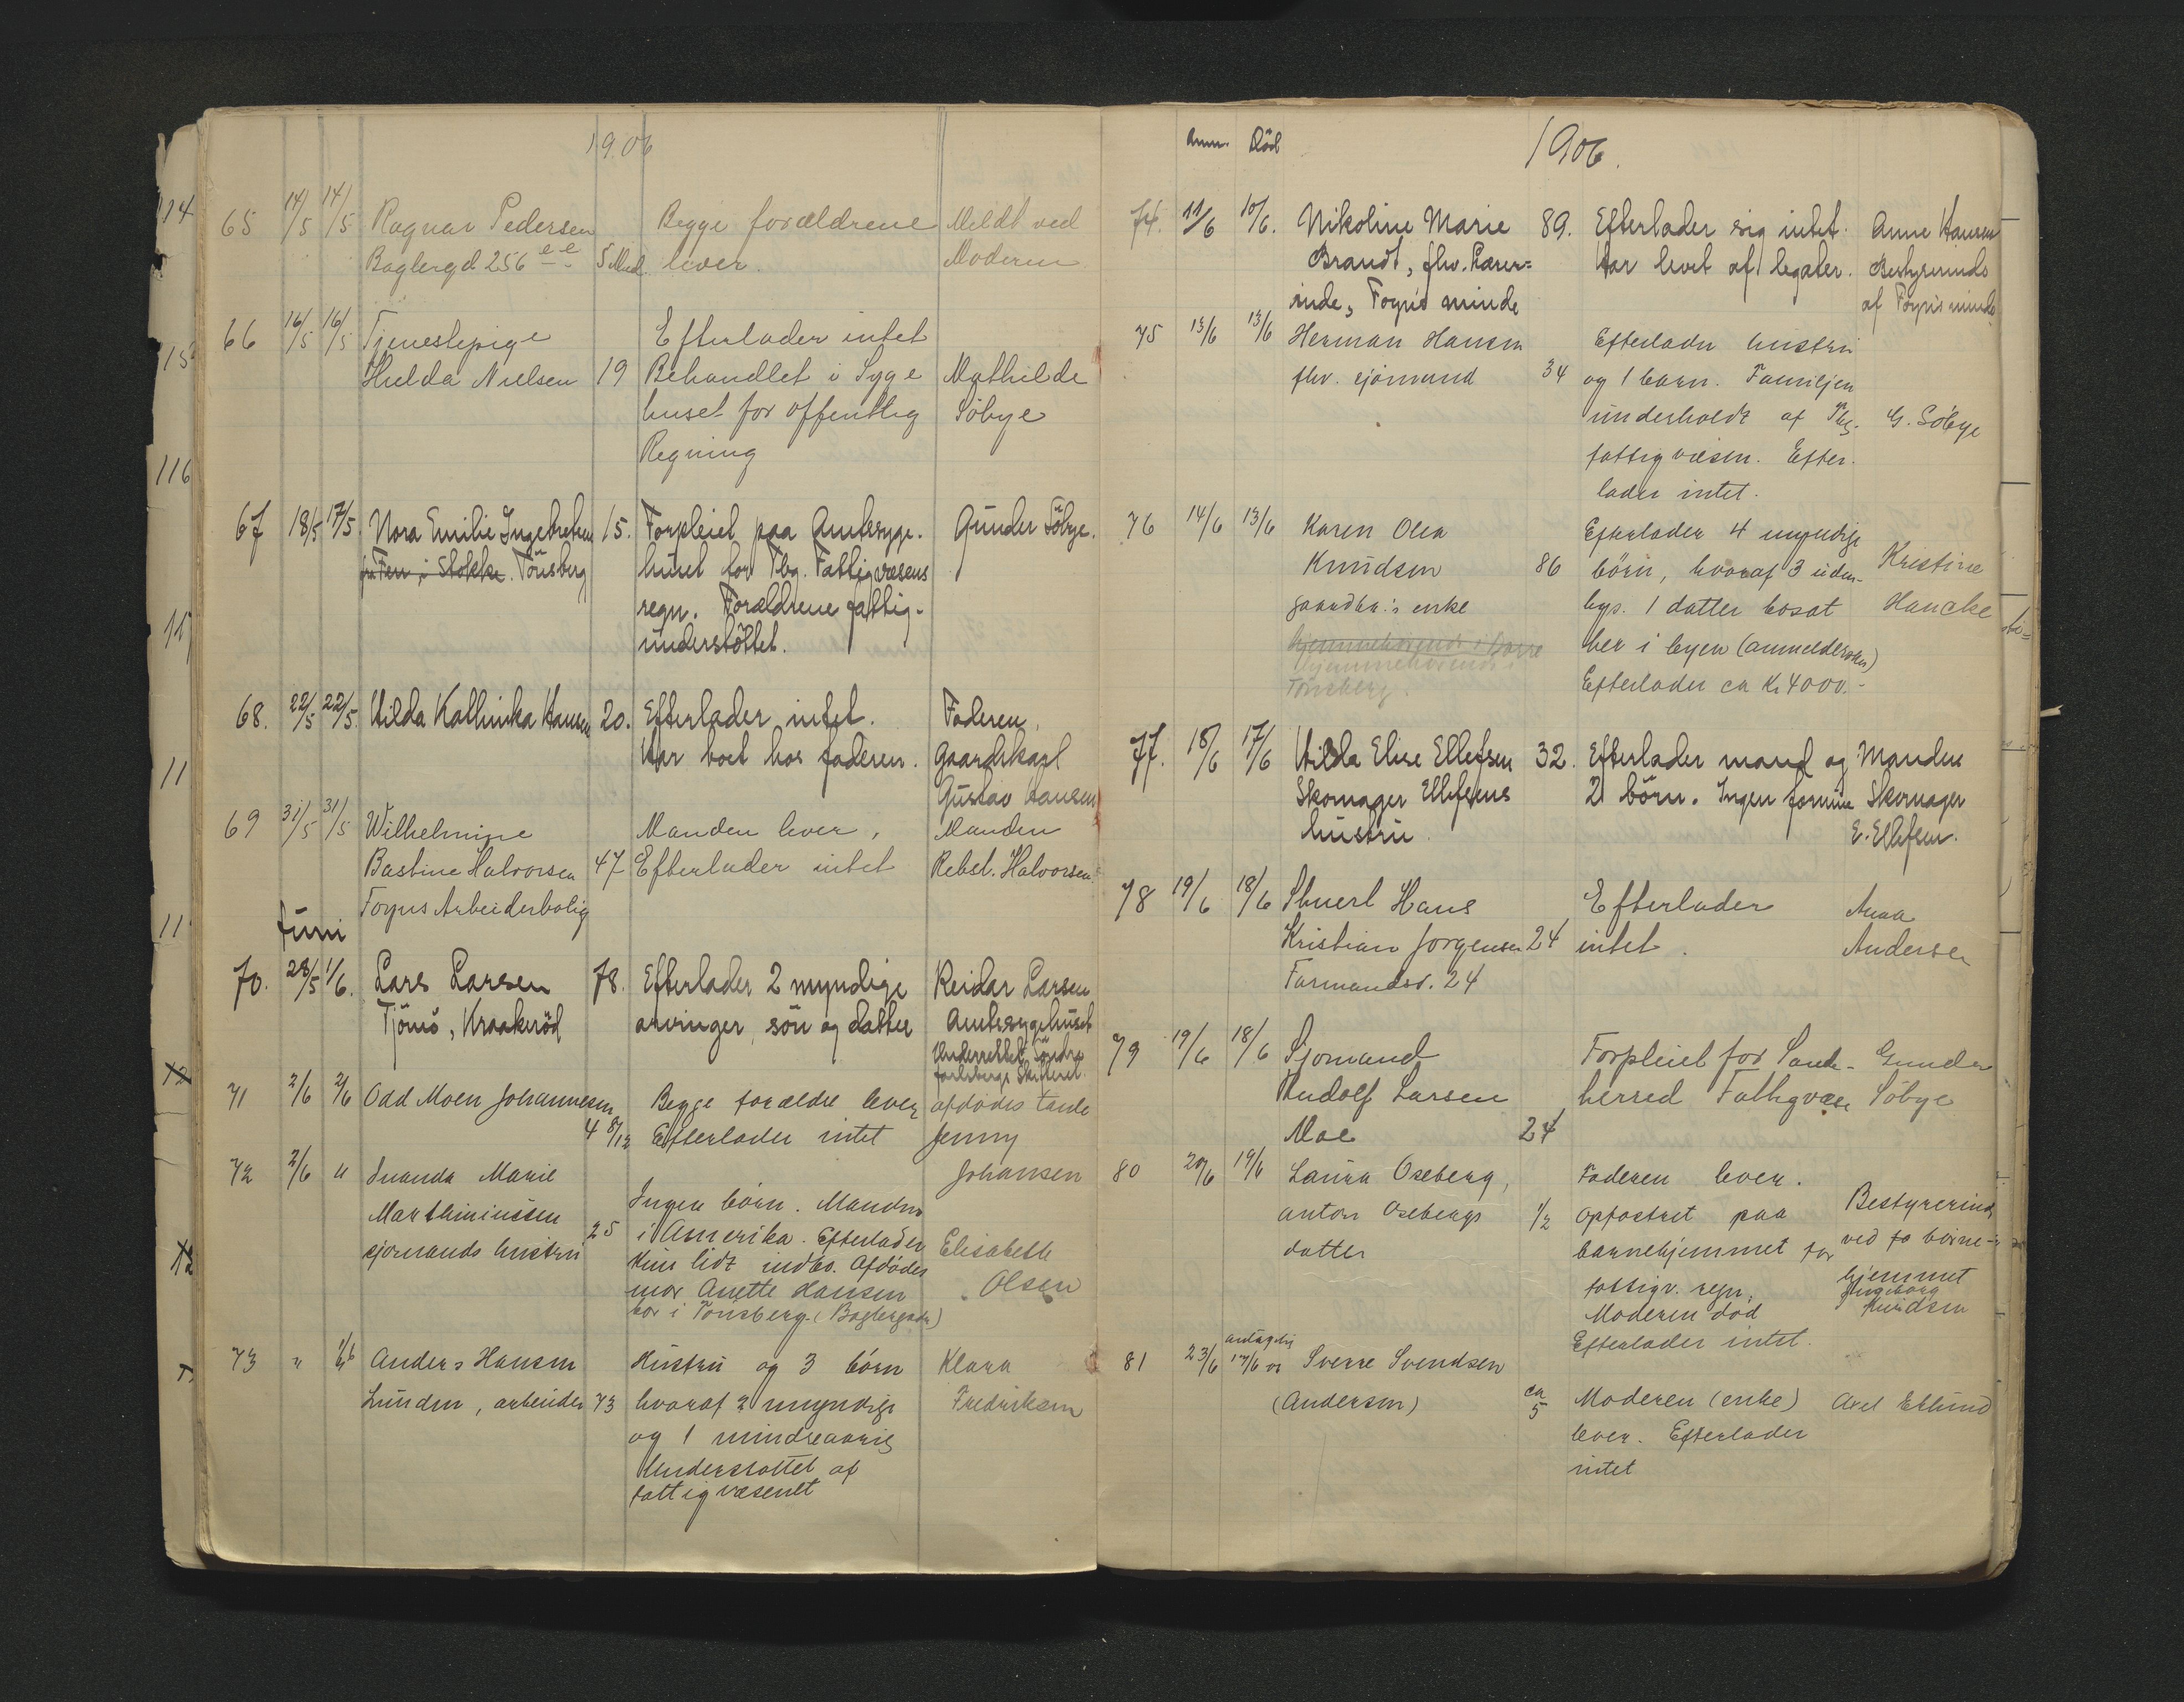 1906
65 14/5 14/5 Ragnar Pedersen Begge forældrene Meldt ved
Baglergd 256 e-e 5 Med lever. Moderen
66 16/5 16/5 Tjenestepige Efterlader intet
Hulda Nielsen 19 Behandlet i Syge Mathilde
huset for offentlig Söbye
Regning
67 18/5 17/5. Nora Emilie Ingebretsen 15. Forpleiet paa Amtssyge. Gunder Söbye.
fra Fen i Stokke. Tönsberg huset for Tbg. Fattigvæsens
regn. Forældrene fattig-
understöttet.
68. 22/5 22/5. Hilda Kathinka Hansen 20. Efterlader intet. Faderen,
Har boet hos faderen. Gaardskarl
Gustav Hansen
69 31/5 31/5 Wilhelmine Manden lever, Manden
Bastine Halvorsen 47 Efterlader intet Rebsl. Halvorsen
Foyns Arbeiderbolig
Juni
70. 28/5 1/6. Lars Larsen 78. Efterlader 2 myndige Reidar Larsen
Tjömö, Kraakeröd arvinger, sön og datter Amtssygehuset
Underrettet Söndre
Jarlsbergs Skifteret.
71 2/6 2/6 Odd Moen Johannesen Begge forældre lever afdödes tante
4 8/12 Efterlader intet Jenny
Johansen
72 2/6 " Marie
Marthiniussen Ingen börn. Manden
sjömands hustru 25 i Amerika. Efterlader Elisabeth
kun lidt indbo. Afdödes Olsen
mor Anette Hansen
bor i Tönsberg. (Baglergaden)
73 " 1/6 Anders Hansen Hustru og 3 börn Klara
Lunden, arbeider 73 hvoraf 2 myndige Fredriksen
og 1 mindreaarig
Understöttet af
fattigvæsenet
Anm. Död
1906.
74. 11/6 10/6. Nikoline Marie 89. Efterlader sig intet. Anne Hansen
Brandt, fhv. Lærer= Har levet af legater. Bestyrerinde
inde, Foyns minde af Foyns minde.
75 13/6 13/6 Herman Hansen Efterlader hustru
fhv. sjömand 34 og 1 barn. Familjen
underholdt af Tbg. G. Söbye
fattigvæsen. Efter.
lader intet.
76 14/6 13/6 Karen Olea Efterlader 4 myndige
Knudsen 86 börn, hvoraf 3 uden- Kristine
gaardbr.'s enke bys. 1 datter bosat Hancke
hjemmehörende i Borre her i byen (anmeldersken)
Hjemmehörende i
Tönsberg. Efterlader ca Kr 4000.-
77. 18/6 17/6 Hilda Elise Ellefsen 32. Efterlader mand og Manden
Skomager Ellefsens 2 börn. Ingen formue Skomager
hustru. E. Ellefsen.
78 19/6 18/6 Stuerl Hans Efterlader Anna
Kristian Jorgensen 24 intet. Andersen
Farmandsv. 24
79 19/6 18/6 Sjömand Forpleiet for Sande- Gunder
Rudolf Larsen herred Fattigvæsen Söbye
Moe 24
80 20/6 19/6 Laura Oseberg, Faderen lever.
Anton Osebergs 1/2 Opfostret paa Bestyrerinde
datter barnehjemmet for ved börne-
fattigv. regn. hjemmet
Moderen död Ingeborg
Knudsen
Efterlader intet.
81 23/6 antagelig 17/6 06 Sverre Svendsen
(Andersen) ca 5 Moderen (enke) Axel
lever. Efterlader
intet